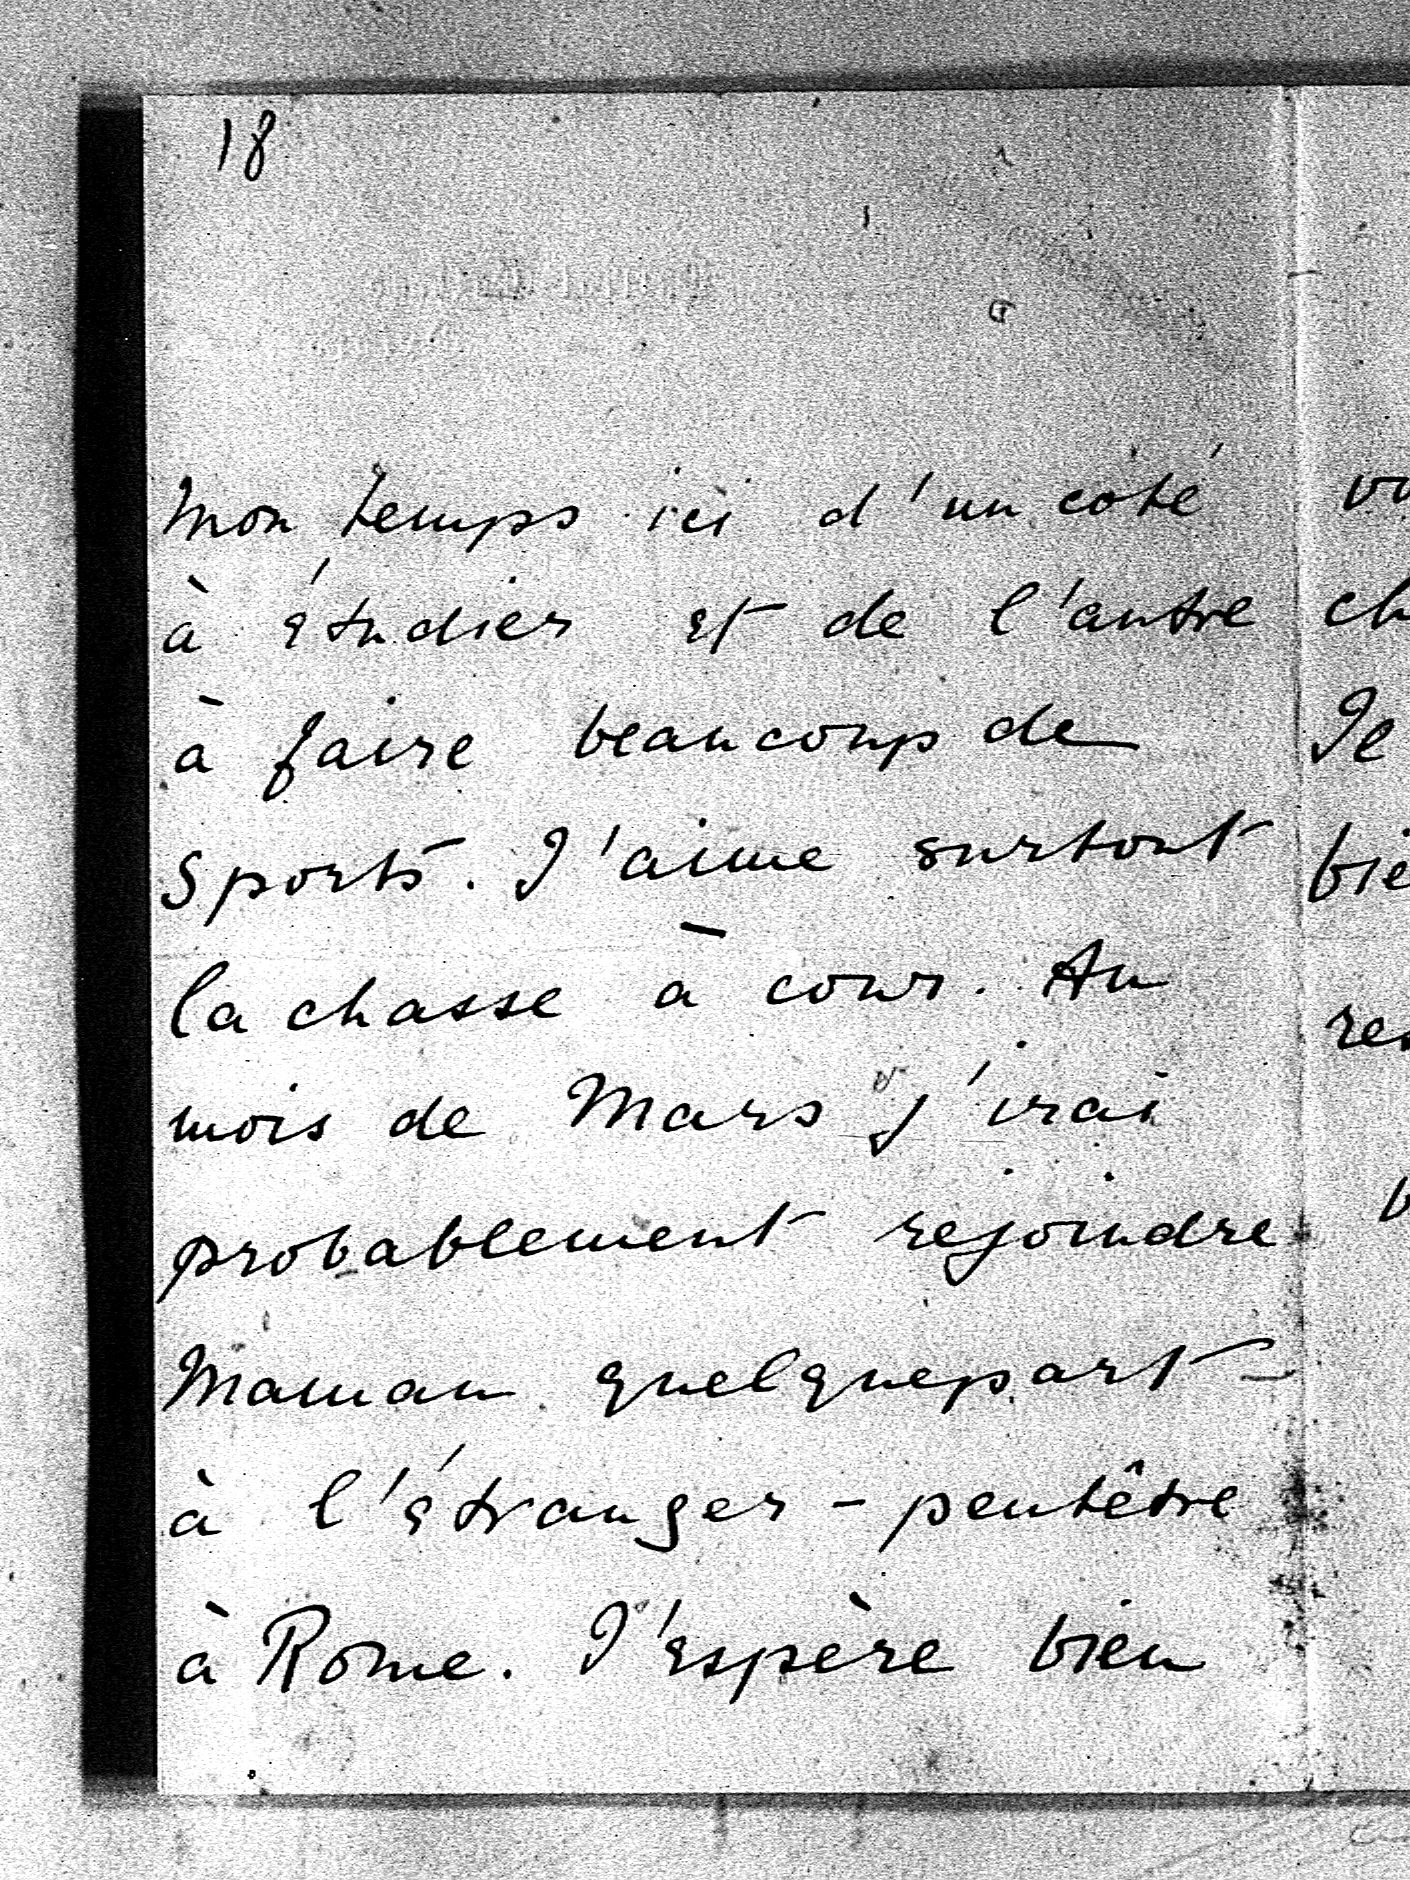 18
mon temps ici d'un côté
à étudier et de l'autre
à faire beaucoup de
sports. J'aime surtout
la chasse à cour. Au
mois de Mars j'irai
probablement rejoindre
Maman quelquepart
à l'étranger - peutêtre
à Rome. J'espère bien
Je